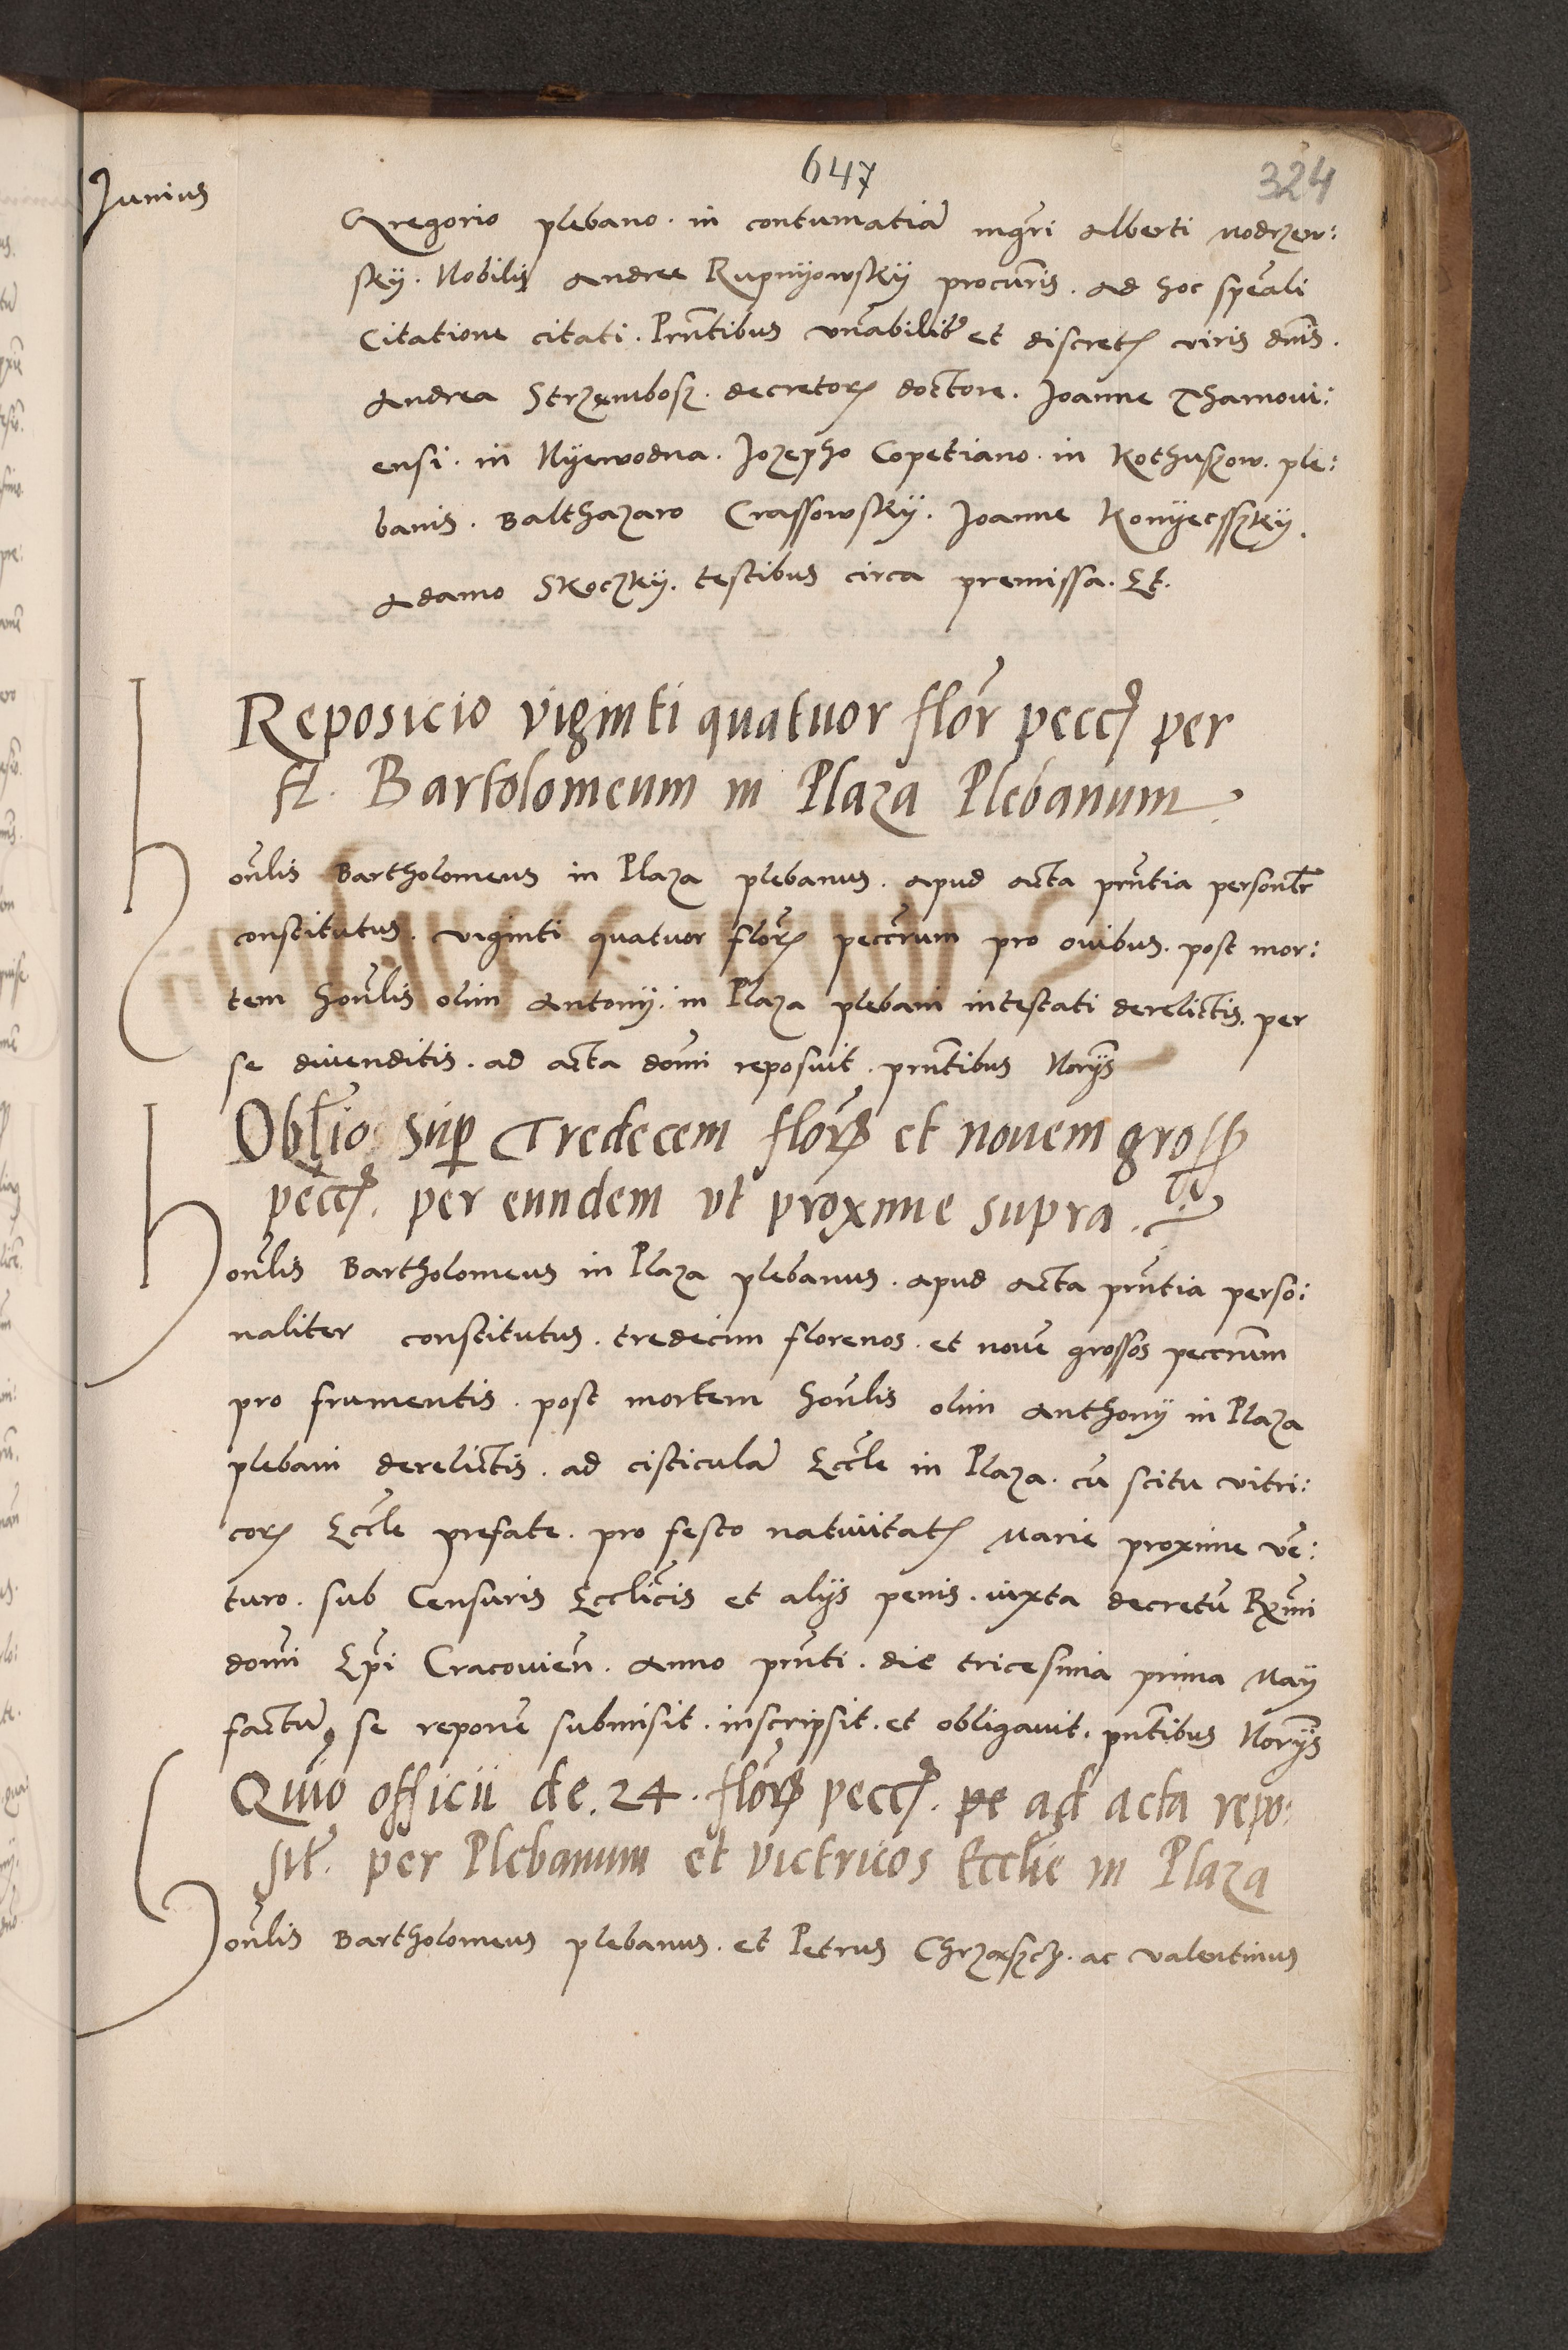 647
324
Junius
Gregorio plebano. in contumatiā mgr̄i Alberti Modrzew:
sky. Nobilis Andree Rupnyowsky procur̄is. ad hoc spēali
Citatione citati. Prn̄tibus vn̄abilibꝰ et discretꝭ viris dn̄is.
Andrea Strzembosz. decretorꝝ doctore. Joanne Tharnoui:
ensi. in Nyewodna. Jozepho Copetiano. in Kothuszow. ple:
banis. Balthazaro Crassowsky. Joanne Konyecssky.
Adamo Skoczky. testibus circa premissa. Et.
Reposicio viginti quatuor flor̄ pecc̄ꝝ per
H. Bartolomeum in Plaza Plebanum
Hon̄lis Bartholomeus in Plaza plebanus. apud acta prn̄tia personlr̄
constitutus. viginti quatuor flor̄ꝝ pecc̄rum pro ouibus. post mor:
tem hon̄lis olim Antonij. in Plaza plebani intestati derelictis. per
se diuenditis. ad acta dom̄i reposuit. prn̄tibus Nor̄ijs
Obl̄io sup̱ Tredecem flor̄ꝝ et nouem gross
pecc̄ꝝ. per eundem vt proxime supra.
Hon̄lis Bartholomeus in Plaza plebanus. apud acta prn̄tia perso:
naliter constitutus. tredecim florenos. et nouē grossos peccrn̄m
pro frumentis. post mortem hon̄lis olim Anthonij in Plaza
plebani derelictis. ad cisticulā Eccl̄e in Plaza. cū scitu vitri:
corꝝ Eccl̄e prefate. pro festo natiuitatꝭ Marie proxime vē:
turo. sub Censuris Eccl̄icis et alijs penis. iuxta decretū Rx̄mi
dom̄i Ep̄i Cracouien̄. Anno prn̄ti. die tricesima prima Maij
factū, se reponē submisit. inscripsit. et obligauit. pn̄tibus Nor̄ijs
Quio officii de. 24. flor̄ꝝ pecc̄ꝝ. pe ad acta repo:
sit̄. per Plebanum et victricos Eccl̄ie in Plaza
Hon̄lis Bartholomeus plebanus. et Petrus Chrzasczh. ac Valentinus